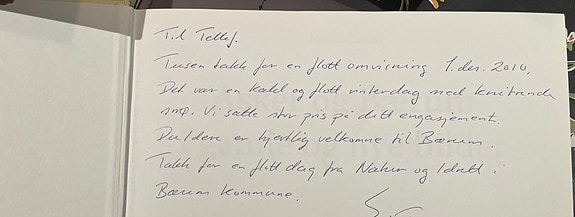 Til Tellef.
Tusen takk for en flott omvisning 1. des. 2010,
Det var en kald og flott vinterdag med knitrende
snø. Vi sette stor pris på ditt engasjement.
Du/dere er hjertlig velkomne til Bærum.
Takk for en flott dag fra Natur og Idrett i
Bærum kommune.